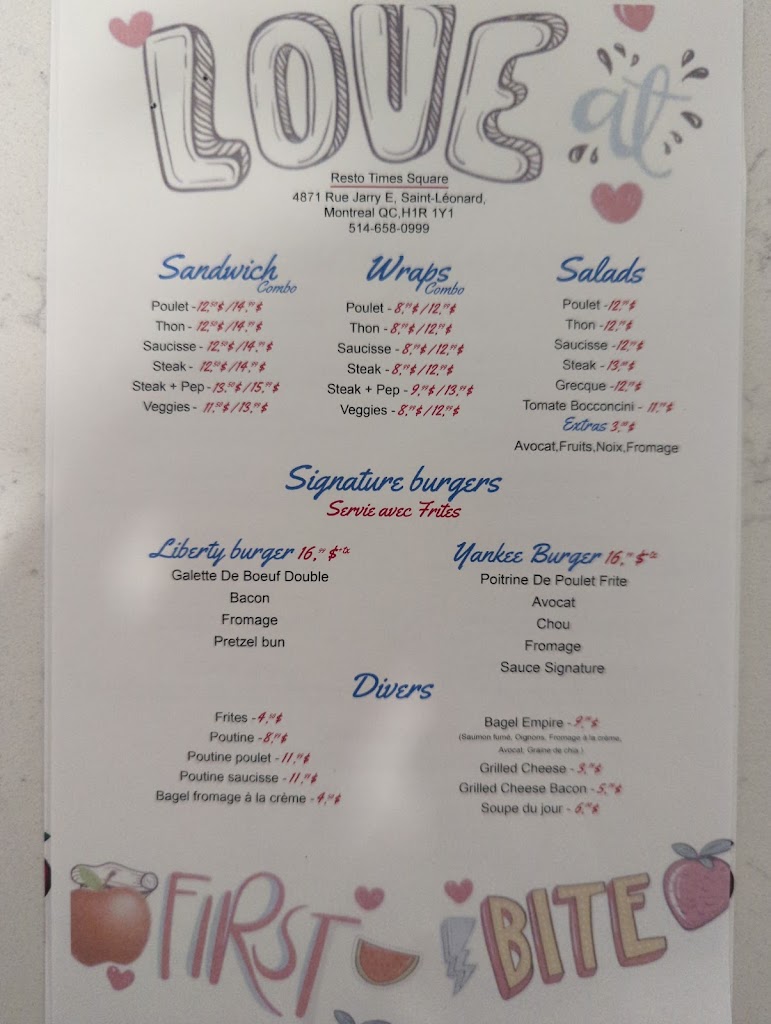 LOVE at
Resto Times Square
4871 Rue Jarry E, Saint-Léonard,
Montreal QC,H1R 1Y1
514-658-0999
Sandwich
Combo
Poulet -12,50$/14,99$
Thon - 12,50$/14,99$
Saucisse - 12,50$/14,99$
Steak - 12,50$/14,99$
Steak + Pep -13,50$/15,99$
Veggies - 11,50$/13,99$
Wraps
Combo
Poulet - 8,99$/12,99$
Thon - 8,99$/12,99$
Saucisse - 8,99$/12,99$
Steak - 8,99$/12,99$
Steak + Pep - 9,99$/13,99$
Veggies - 8,99$/12,99$
Salads
Poulet -12,99$
Thon -12,99$
Saucisse -12,99$
Steak - 13,99$
Grecque -12,99$
Tomate Bocconcini - 11,99$
Extras
Avocat,Fruits,Noix,Fromage
Signature burgers
Servie avec Frites
Liberty burger 16,99 $+tx
Galette De Boeuf Double
Bacon
Fromage
Pretzel bun
Yankee Burger 16,99 $+tx
Poitrine De Poulet Frite
Avocat
Chou
Fromage
Sauce Signature
Divers
Frites -
Poutine -
Poutine poulet -
Poutine saucisse -
Bagel fromage à la crème -
Bagel Empire -
(Saumon fumé, Oignons, Fromage à la crème,
Avocat, Graine de chia )
Grilled Cheese -
Grilled Cheese Bacon -
Soupe du jour -
FIRST BITE